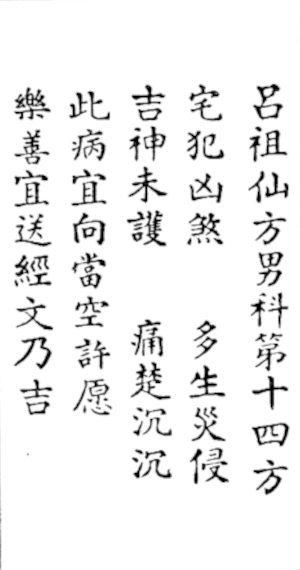 呂祖仙方男科第十四方
宅犯凶煞　多生災侵
吉神未護　痛楚沉沉
此病宜向當空許愿
樂善宜送經文乃吉